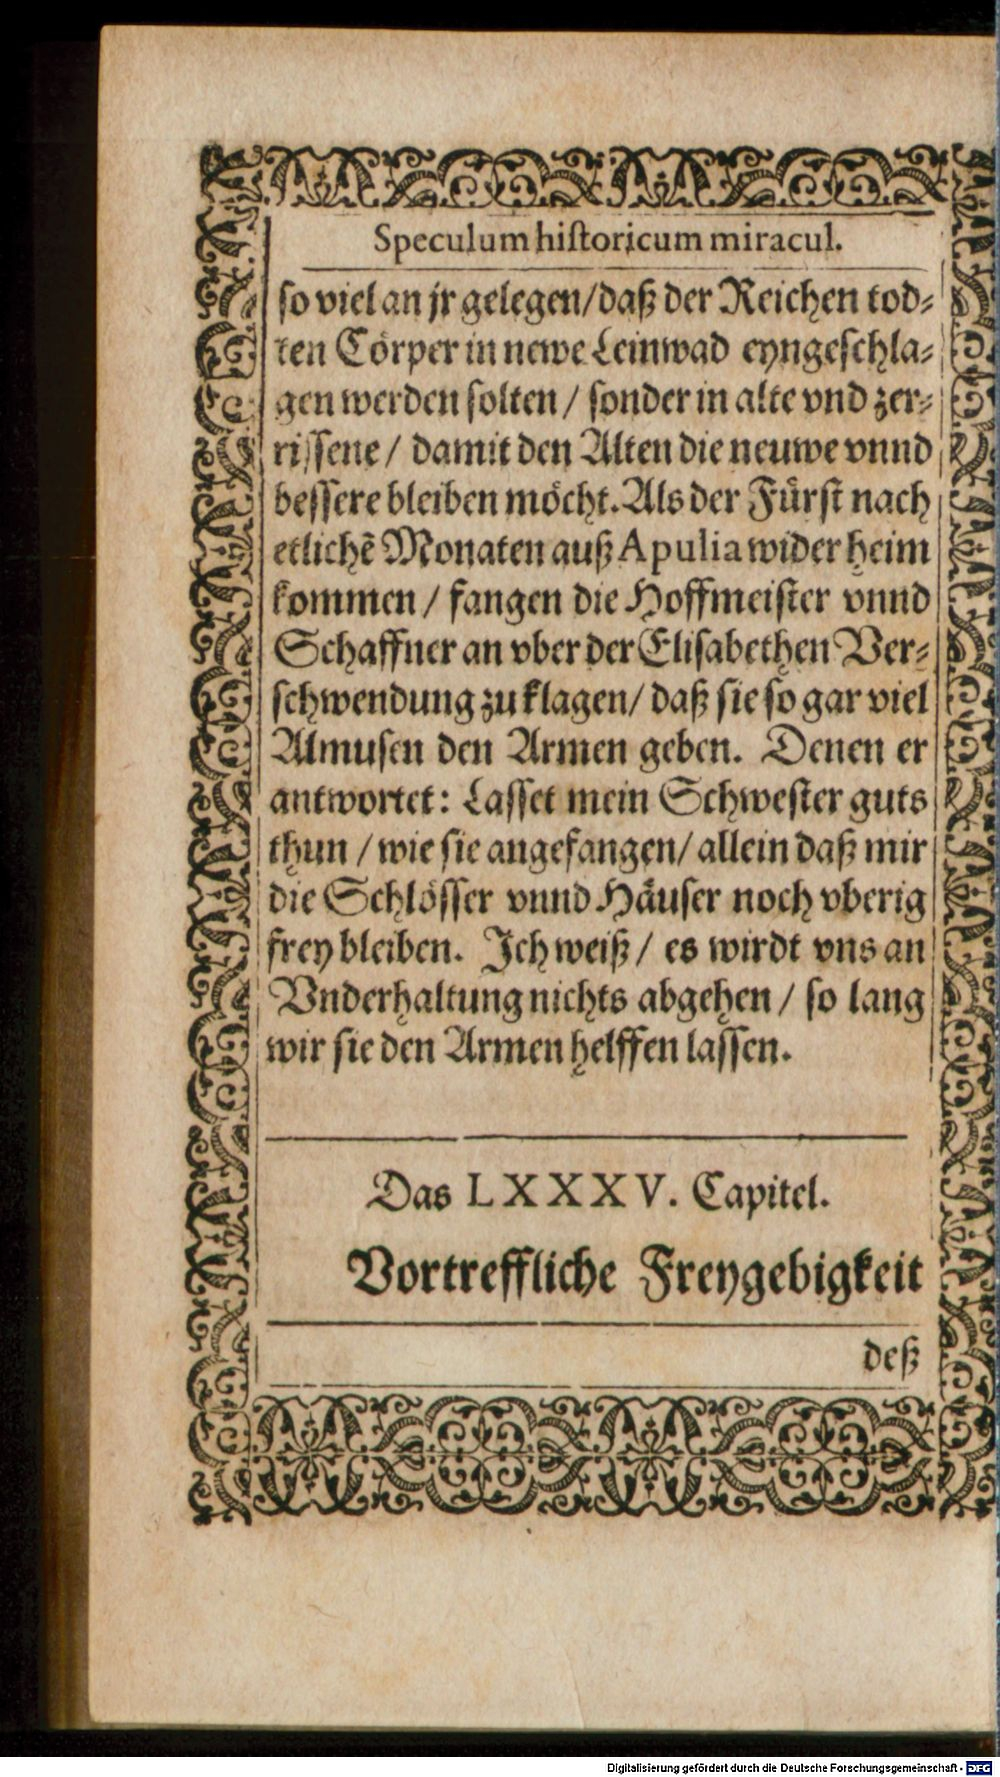 Speculum historicum miracul.
so viel an jr gelegen/daß der Reichen tod-
ten Cörper in newe Leinwad eyngeschla-
gen werden solten / sonder in alte vnd zer-
rissene / damit den Alten die neuwe vnnd
bessere bleiben möcht. Als der Fürst nach
etlichẽ Monaten auß Apulia wider heim
kommen / fangen die Hoffmeister vnnd
Schaffner an vber der Elisabethen Ver-
schwendung zu klagen/ daß sie so gar viel
Almusen den Armen geben. Denen er
antwortet: Lasset mein Schwester guts
thun / wie sie angefangen/ allein daß mir
die Schlösser vnnd Häuser noch vberig
frey bleiben. Ich weiß / es wirdt vns an
Vnderhaltung nichts abgehen / so lang
wir sie den Armen helffen lassen.
Das LXXXV. Capitel.
Vortreffliche Freygebigkeit
deß
Digitalisierung gefördert durch die Deutsche Forschungsgemeinschaft - DFG